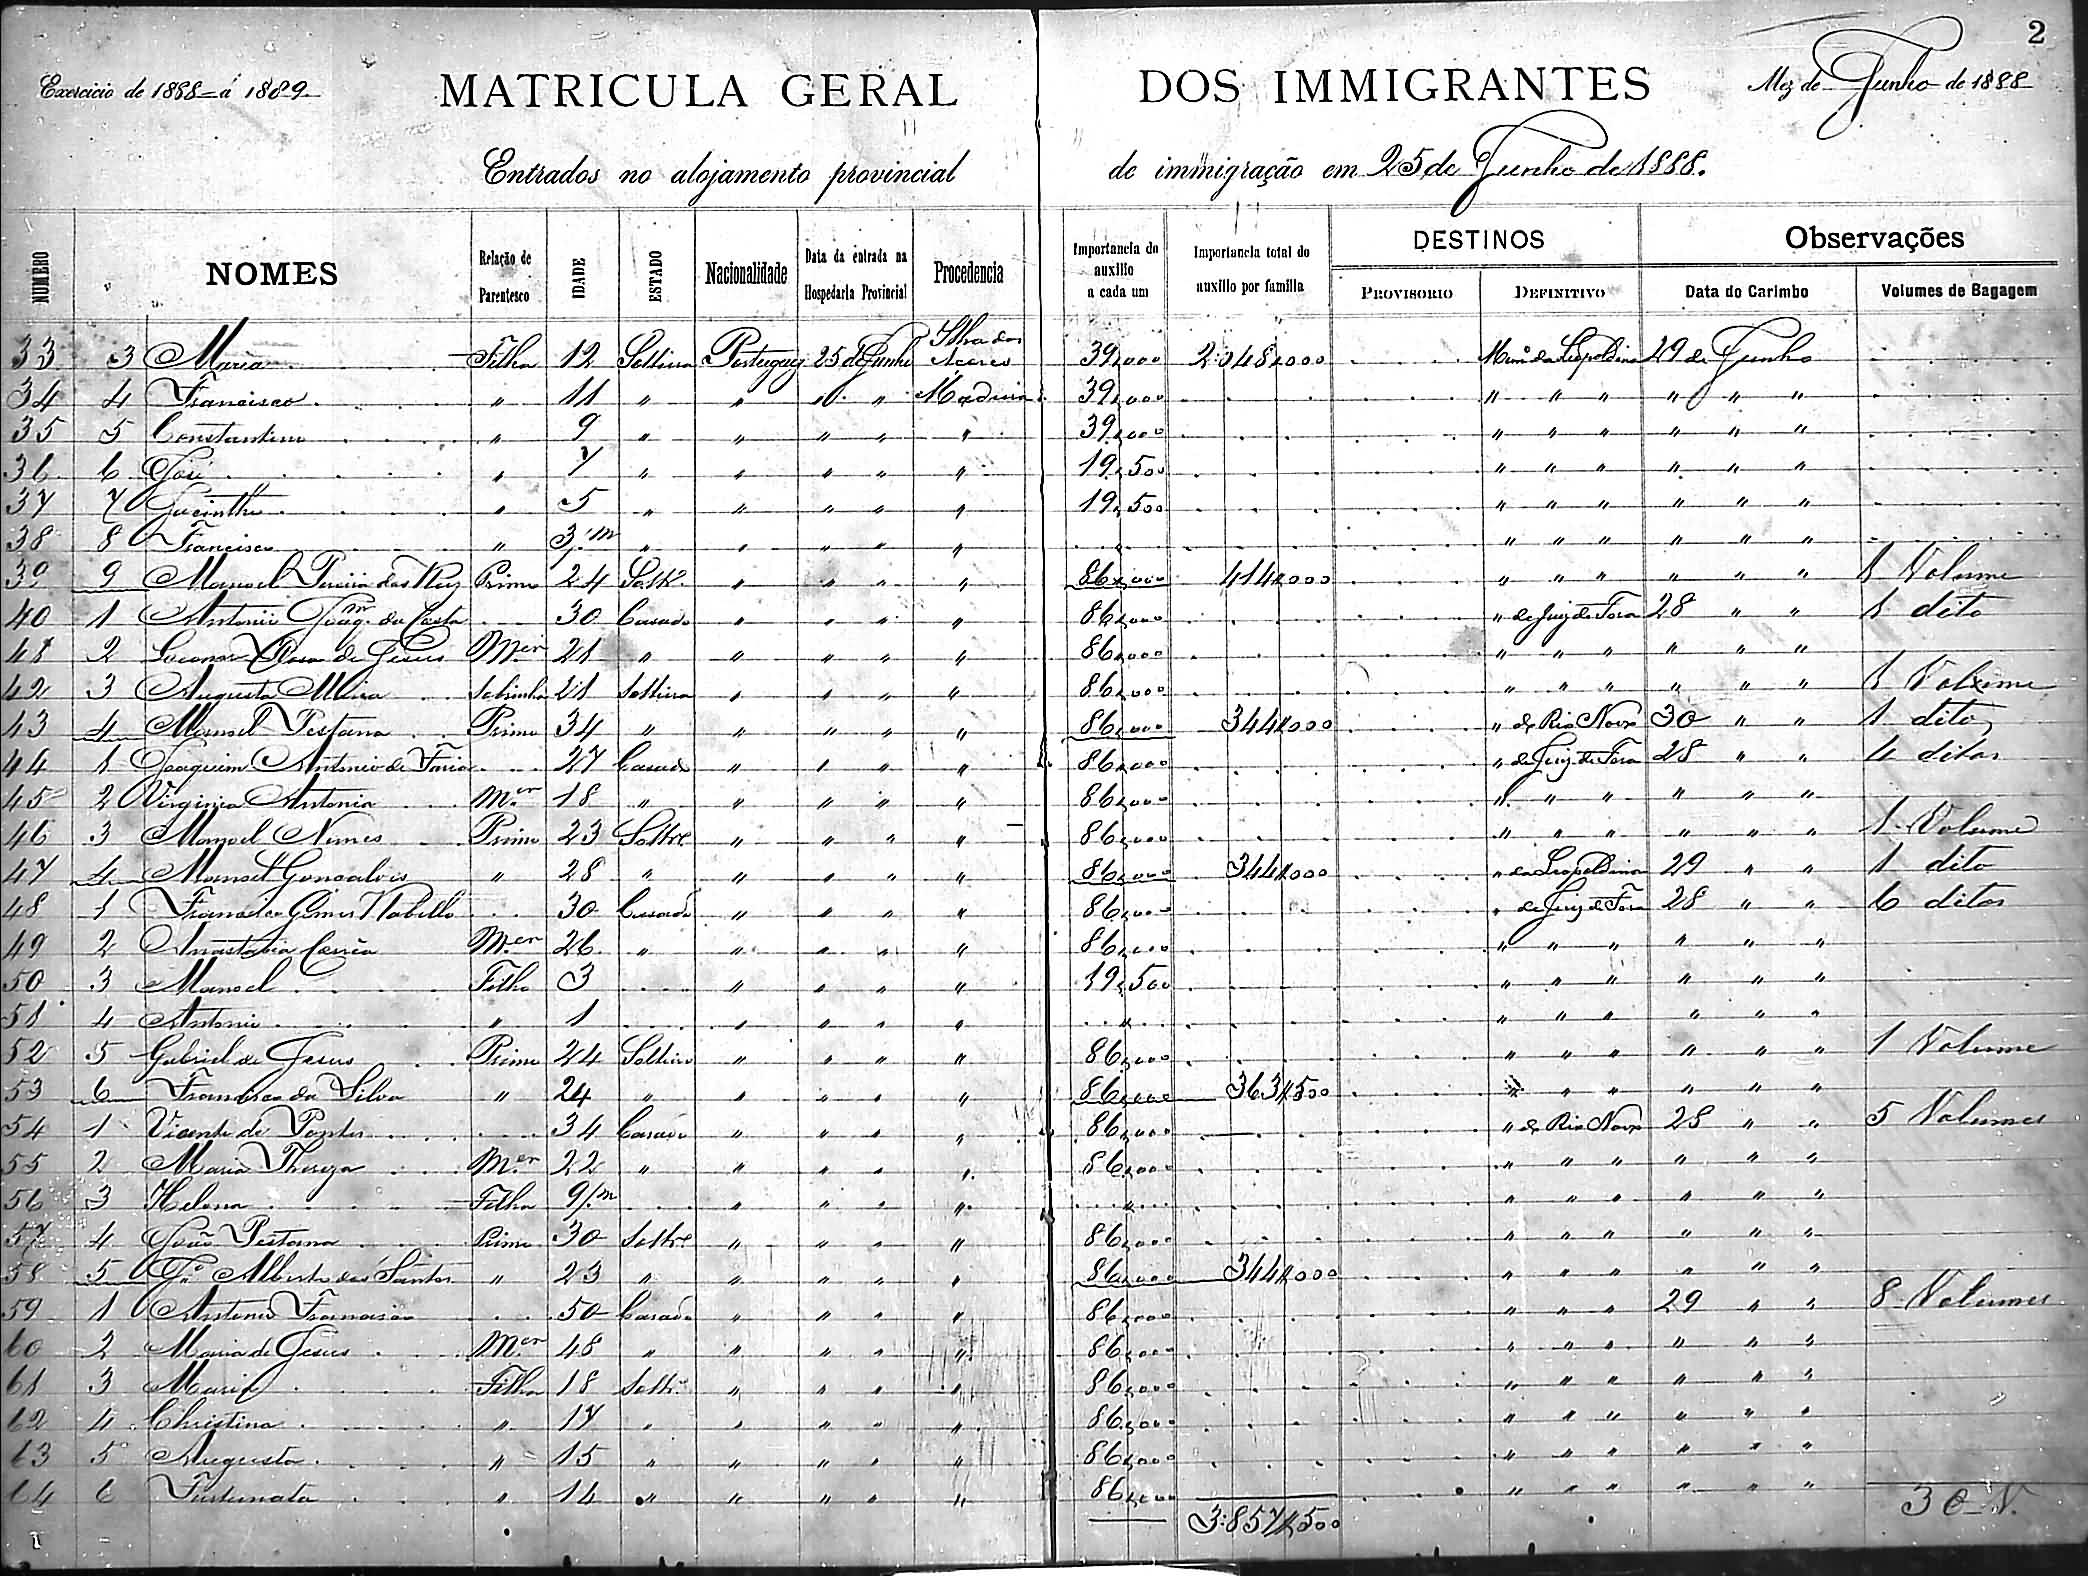 2
Exercicio de 1888 á 1889
MATRICULA GERAL DOS IMMIGRANTES
Mez de Junho de 1888
Entrados no alojamento provincial de immigração em 25 de Junho de 1888.
NUMERO NOMES Relação de Parentesco IDADE ESTADO Nacionalidade Data da entrada na Hospedaria Provincial Procedencia Importancia do auxilio a cada um Importancia total do auxilio por familia DESTINOS PROVISORIO DEFINITIVO Observações Data do Carimbo Volumes de Bagagem
33 3 Maria Filha 12 Solteira Portugueza 25 de Junho Ilha dos Açores 39,000 2:048,000 Mun. da Leopoldina 29 de Junho
34 4 Francisco " 11 " " " " Madeira 39,000 " " " " " "
35 5 Constantino " 9 " " " " " 39,000 " " " " " "
36 6 José " 7 " " " " " 19,500 " " " " " "
37 7 Jacintho " 5 " " " " " 19,500 " " " " " "
38 8 Francisco " 3/m " " " " " " " " " " "
39 9 Manoel Pereira das Primo 24 Soltr.o " " " " 86,000 414,000 " " " " " " 1 Volume
40 1 Antonio Joaq.m da Costa 30 Casado " " " " 86,000 " de Juiz de Fora 28 " " 1 dito
41 2 Rosa de Jesus M.er 21 " " " " " 86,000 " " " " " "
42 3 Augusta Meira Sobrinha 21 Solteira " " " " 86,000 " " " " " " 1 Volume
43 4 Manoel Pestana Primo 34 " " " " " 86,000 344,000 " de Rio Novo 30 " " 1 dito
44 1 Joaquim Antonio de Faria 27 Casado " " " " 86,000 " de Juiz de Fora 28 " " 4 ditos
45 2 Virginia Antonia M.er 18 " " " " " 86,000 " " " " " "
46 3 Manoel Nunes Primo 23 Soltr.o " " " " 86,000 " " " " " " 1 Volume
47 4 Manoel Gonsalves " 28 " " " " " 86,000 344,000 " da Leopoldina 29 " " 1 dito
48 1 Francisco Gomes Rabello 30 Casado " " " " 86,000 " de Juiz de Fora 28 " " 6 ditos
49 2 Anastacia M.er 26 " " " " " 86,000 " " " " " "
50 3 Manoel Filho 3 " " " " 19,500 " " " " " "
51 4 Antonio " 1 " " " " " " " " " " "
52 5 Gabriel de Jesus Primo 24 Solteiro " " " " 86,000 " " " " " " 1 Volume
53 6 Francisco da Silva " 24 " " " " " 86,000 363,500 " " " " " "
54 1 Vicente de Pontes 34 Casado " " " " 86,000 " de Rio Novo 28 " " 5 Volumes
55 2 Maria Thereza M.er 22 " " " " " 86,000 " " " " " "
56 3 Helena Filha 9/m " " " " " " " " " " "
57 4 João Pestana Primo 30 Soltr.o " " " " 86,000 " " " " " "
58 5 J.e Alberto dos Santos " 23 " " " " " 86,000 344,000 " " " " " "
59 1 Antonio Francisco 50 Casado " " " " 86,000 " " " 29 " " 8 Volumes
60 2 Maria de Jesus M.er 48 " " " " " 86,000 " " " " " "
61 3 Maria Filha 18 Soltr.a " " " " 86,000 " " " " " "
62 4 Christina " 17 " " " " " 86,000 " " " " " "
63 5 Augusta " 15 " " " " " 86,000 " " " " " "
64 6 Fortunata " 14 " " " " " 86,000 " " " " " "
3:857,500 30 V.